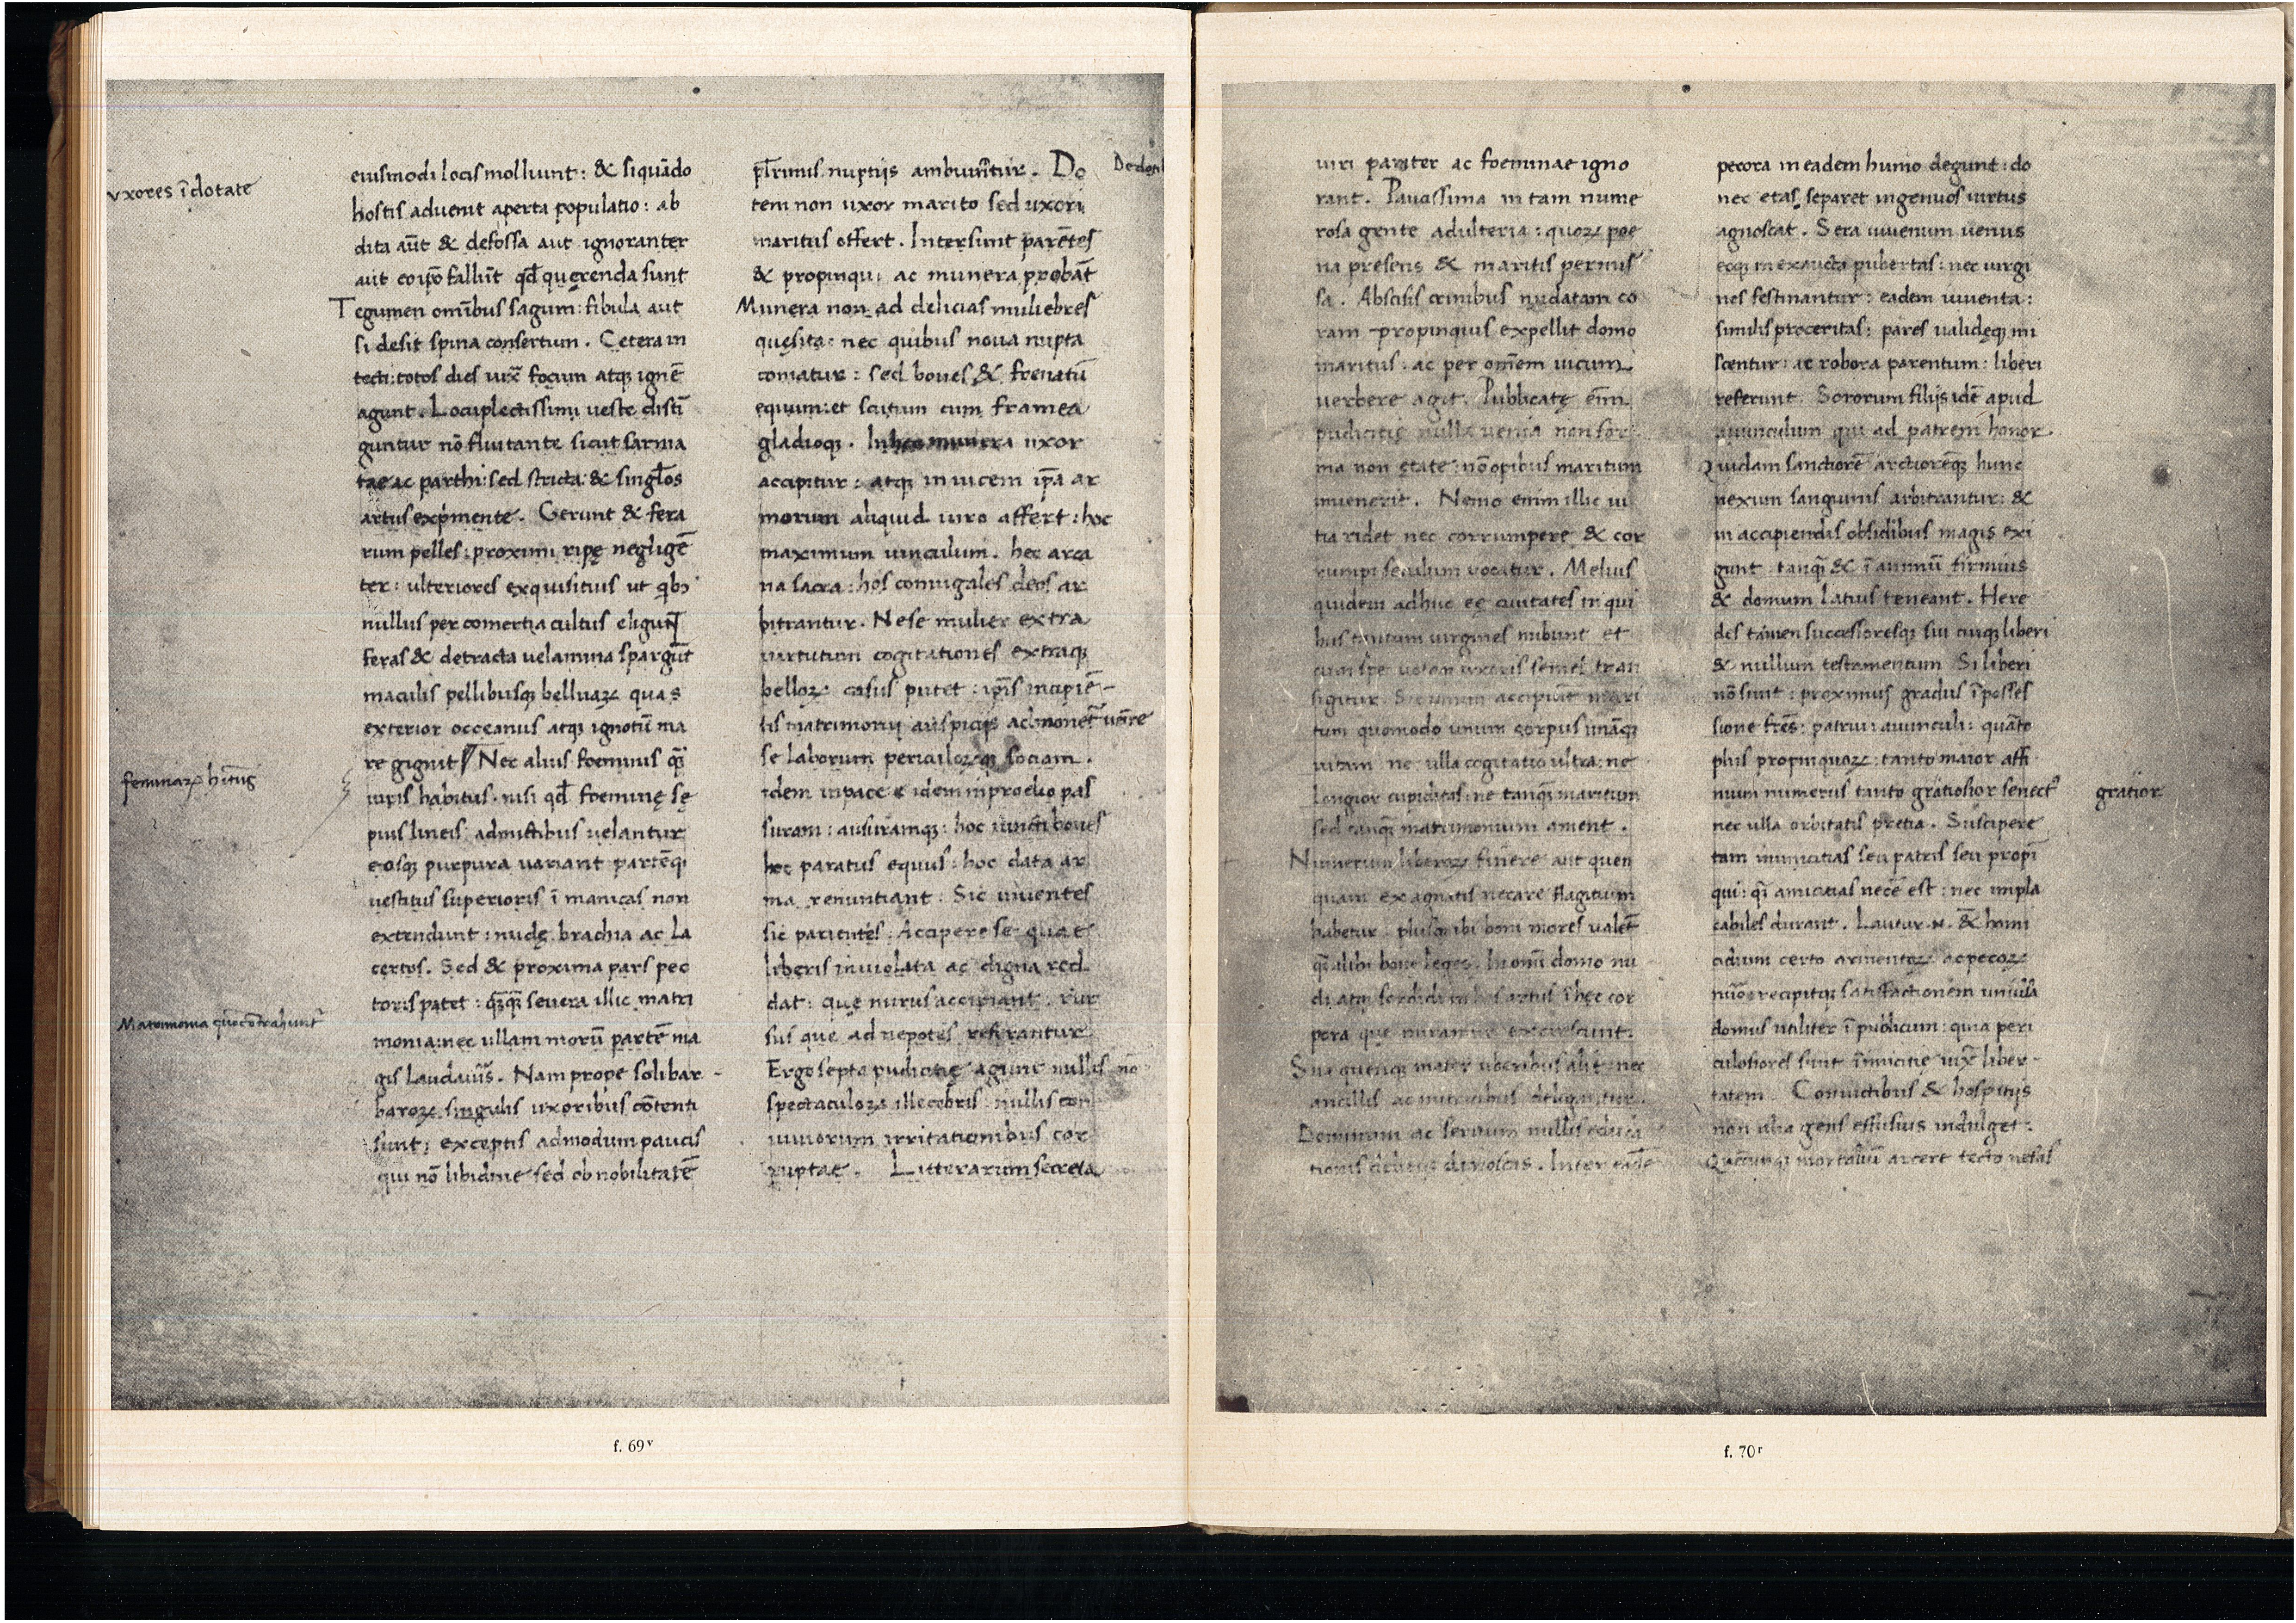 vxores īdotate
eiusmodi locis molliunt: & siquādo
hostis aduenit aperta populatio: ab
dita aūt & defossa aut ignorantur
aut eo ipso fallūt qđ querenda sunt
Tegumen omībus sagum: fibula aut
si desit spina consertum. Cetera in
tecti: totos dies iuxᷓ focum atqꝫ ignē
agunt. Locupletissimi ueste disti
guntur nō fluitante sicut sarma
tae ac parthi: sed stricta & singłos
artus exp̄mente. Gerunt & fera
rum pelles: proximi ripę negligē
ter: ulteriores exquisitius ut qbꝯ
nullus per comertia cultus eligūt
feras & detracta uelamina spargūt
maculis pellibusqꝫ belluaꝝ quas
exterior occeanus atqꝫ ignotū ma
re gignit Nec alius foeminis q̄
uiris habitus. nisi qđ foeminę sę
feminaꝝ hitus
pius lineis amictibus uelantur
eosqꝫ purpura uariant partēqꝫ
uestitus superioris ī manicas non
extendunt: nudę brachia ac la
certos. Sed & proxima pars pec
toris patet: q̄q̄ seuera illic matri
Matrimonia quo cōtrahunt͛
monia: nec ullam morū partē ma
gis laudauis̄. Nam prope soli bar
baroꝝ singulis uxoribus cōtenti
sunt: exceptis admodum paucis
qui nō libidine sed ob nobilitatē
płrimis nuptijs ambiuntur. Do
De dot
tem non uxor marito sed uxori
maritus offert. Intersunt parētes
& propinqui ac munera probāt
Munera non ad delicias muliebres
quęsita: nec quibus noua nupta
comatur: sed boues & frenatū
equum: et scutum cum framea
gladioqꝫ. In hec munera uxor
accipitur: atqꝫ inuicem ip̄a ar
morum aliquid uiro affert: hoc
maximum uinculum. hec arca
na sacra: hos coniugales deos ar
bitrantur. Ne se mulier extra
uirtutum cogitationes extraqꝫ
belloꝝ casus putet: ip̄is incipiē
tis matrimonij auspicijs admonet͛ uēire
se laborum periculoꝝqꝫ sociam.
idem in pace idem in proelio pas
suram: ausuramqꝫ: hoc iuncti boues
hoc paratus equus: hoc data ar
ma renuntiant: Sic uiuentes
sic parientes: Accipere se quae
liberis inuiolata ac digna red
dat: quę nurus accipiant: rur
sus que ad nepotes referantur
Ergo septa pudicitię agunt nullis
spectaculoꝝ illecebris: nullis con
uiuiorum irritationibus cor
ruptae. Litterarum secreta
f. 69ᵛ
uiri pariter ac foeminae igno
rant. Pauassima in tam nume
rosa gente adulteria: quoꝝ poe
na presens & maritis permis
sa. Abscisis crinibus nudatam co
ram propinquis expellit domo
maritus: ac per omēm uicum
uerbere agit. Publicatę enīm
pudicitię nulla uenia non for
ma non etate: nō opibus maritum
inuenerit. Nemo enim illic ui
tia ridet nec corrumpere & cor
rumpi seculum uocatur. Melius
quidem adhuc eę ciuitates in qui
bus tantum uirgines nubunt et
cum spe uotoqꝫ uxoris semel tran
sigitur. Sic unum accipiūt mari
tum quomodo unum corpus unāqꝫ
uitam ne ulla cogitatio ultra: ne
longior cupiditas: ne tanq̄ maritum
sed tanq̄ matrimonium ament.
Numerum liberoꝝ finere aut quen
quam ex agnatis necare flagitium
habetur: plusqꝫ ibi boni mores ualēt
q̄ alibi bone leges. In omī domo nu
di atqꝫ sordidi in hos artus ī hec cor
pora que miramur excrescunt:
Sua quenqꝫ mater uberibus alit: nec
ancillis ac nutricibus delegantur.
Dominum ac seruum nullis educa
tionis delitijs dinoscas. Inter eadē
pecora in eadem humo degunt: do
nec etas separet ingenuos uirtus
agnoscat. Sera iuuenum uenus
eoqꝫ inexausta pubertas: nec uirgi
nes festinantur: eadem iuuenta:
similis proceritas: pares ualidęqꝫ mi
scentur: ac robora parentum: liberi
referunt. Sororum filijs idē apud
auunculum qui ad patrem honor.
Quidam sanctiorē arctiorēqꝫ hunc
nexum sanguinis arbitrantur: &
in accipiendis obsidibus magis exi
gunt tanq̄ & ī animū firmius
& domum latius teneant. Here
des tamen successoresqꝫ sui cuiqꝫ liberi
& nullum testamentum Si liberi
nō sunt: proximus gradus ī posses
sione frēs: patrui: auunculi: quāto
plus propinquoꝝ: tanto maior affi
nium numerus tanto gratiosior senect͛
gratior
nec ulla orbitatis pretia. Suscipere
tam inimicitias seu patris seu propī
qui: q̄ amicitias necē est: nec impla
cabiles durant. Luitur .n. & homi
cidium certo armentoꝝ ac pecoꝝ
nūo: recipitqꝫ satisfactionem uniuīsa
domus utiliter ī publicum: quia peri
culosiores sunt īimicitię iuxᷓ liber
tatem Conuictibus & hospitijs
non alia gens effusius indulget:
Quēcunqꝫ mortaliū arcere tecto nefas
f. 70ʳ